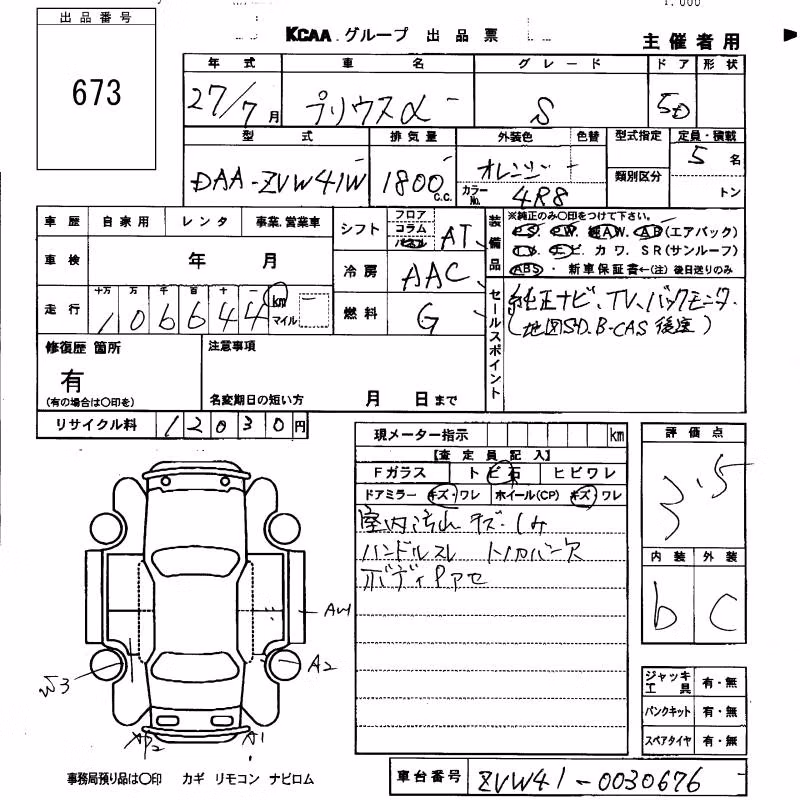 1.000
出品番号
673
KCAA グループ 出品票
主催者用
年式 車名 グレード ドア 形状
27/7月 プリウスα S 5D
型式 排気量 外装色 色替 型式指定 定員・積載
DAA-ZVW41W 1800 c.c. オレンジ カラーNo. 4R8 類別区分 5名 トン
車歴 自家用 レンタ 事業.営業車
車検 年 月
走行 十万 万 千 百 十 一 106644 km マイル
シフト フロア コラム パネル AT
冷房 AAC
燃料 G
装備品
※純正のみ○印をつけて下さい。
P.S. P.W. 純AW. AB(エアバック)
T.V. ナビ. カワ. SR(サンルーフ)
ABS ・ 新車保証書←(注)後日送りのみ
セールスポイント
純正ナビ、TV、バックモニター
(地図SD、B-CAS後送)
修復歴 箇所
有
(有の場合は○印を)
注意事項
名変期日の短い方 月 日まで
リサイクル料 12030円
現メーター指示 km
【査定員記入】
Fガラス トビ石 ヒビワレ
ドアミラー キズ・ワレ ホイール(CP) キズ・ワレ
室内汚れ キズ・しみ
ハンドルスレ トノカバー欠
ボディPアセ
評価点
3.5
内装 外装
b C
ジャッキ工具 有・無
パンクキット 有・無
スペアタイヤ 有・無
A2
W3
A1
事務局預り品は○印 カギ リモコン ナビロム
車台番号 ZVW41-0030676